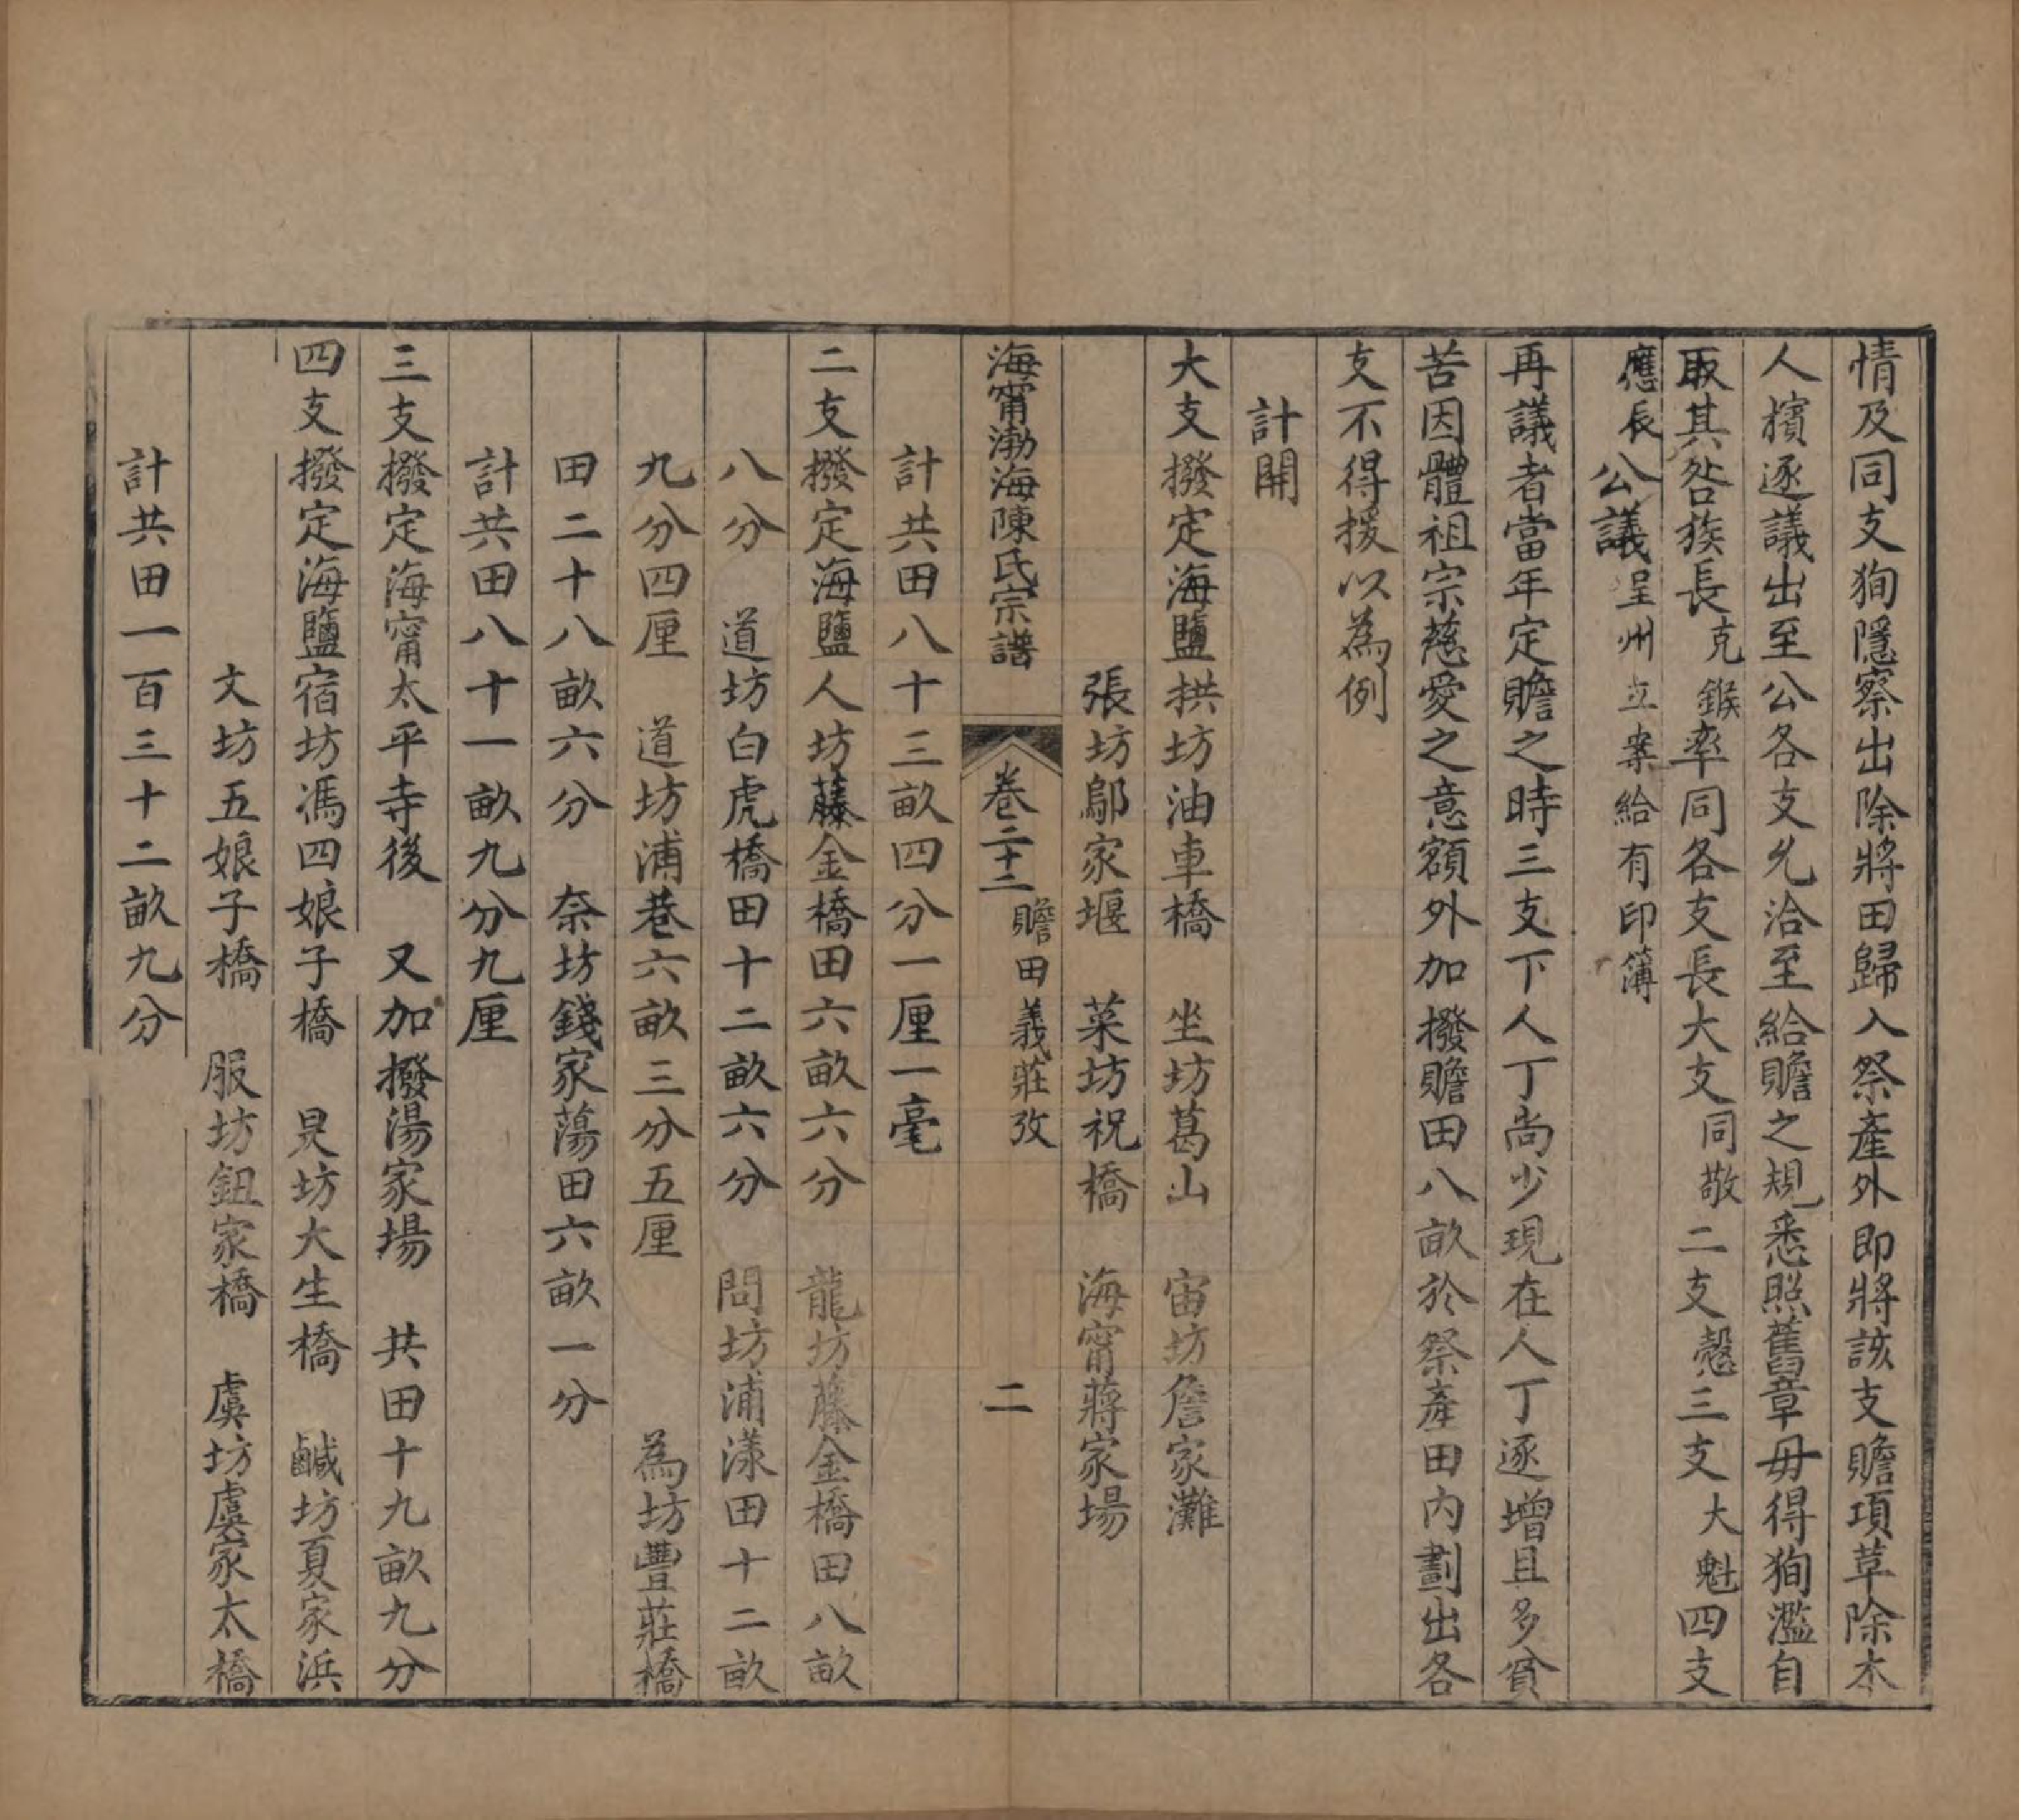 情及同支狥隱察出除將田歸入祭產外即將該支贍項草除本
人擯逐議出至公各支允洽至給贍之規悉照舊章毋得狥濫自
取其咎族長克鍭率同各支長大支同敬二支慤三支大魁四支
應辰公議呈州立案給有印簿
再議者當年定贍之時三支下人丁尚少現在人丁逐增且多貧
苦因體祖宗慈愛之意額外加撥贍田八畝於祭產田內劃出各
支不得援以為例
計開
大支撥定海鹽拱坊油車橋　坐坊葛山　宙坊詹家灘
張坊鄔家堰　菜坊祝橋　海甯蔣家場
海甯渤海陳氏宗譜　卷二十二　贍田義莊攷　二
計共田八十三畝四分一厘一毫
二支撥定海鹽人坊藤金橋田六畝六分　龍坊藤金橋田八畝
八分　道坊白虎橋田十二畝六分　問坊浦漾田十二畝
九分四厘　道坊浦巷六畝三分五厘　為坊豐莊橋
田二十八畝六分　奈坊錢家蕩田六畝一分
計共田八十一畝九分九厘
三支撥定海甯太平寺後　又加撥湯家場　共田十九畝九分
四支撥定海鹽宿坊馮四娘子橋　昃坊大生橋　鹹坊夏家浜
文坊五娘子橋　服坊鈕家橋　虞坊虞家太橋
計共田一百三十二畝九分